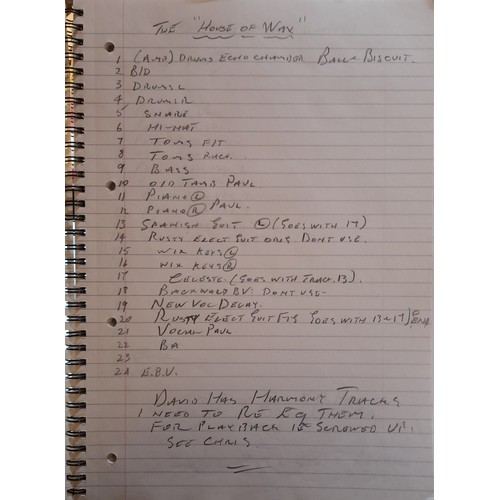 THE "HOUSE OF WAX"
1 (AMB) DRUMS ECHO CHAMBER BALL & BISCUIT.
2 B/D
3 DRUMS L
4 DRUMS R
5 SNARE
6 HI-HAT
7 TOMS F/T
8 TOMS RACK.
9 BASS
10 OLD TAMB PAUL
11 PIANO L
12 PIANO R PAUL.
13 SPANISH GUIT L (GOES WITH 17)
14 RUSTY ELECT GUIT ORIG DONT USE.
15 WIX KEYS L
16 WIX KEYS R
17 CELESTE. (GOES WITH TRACK 13)
18 BACKWARD BV: DONT USE-
19 NEW VOC DELAY.
20 RUSTY ELECT GUIT FIG GOES WITH 13 & 17) END
21 VOCAL PAUL
22 BA
23
24 E.B.V.
DAVID HAS HARMONY TRACKS
I NEED TO RE EQ THEM.
FOR PLAYBACK IS SCREWED UP!
SEE CHRIS.